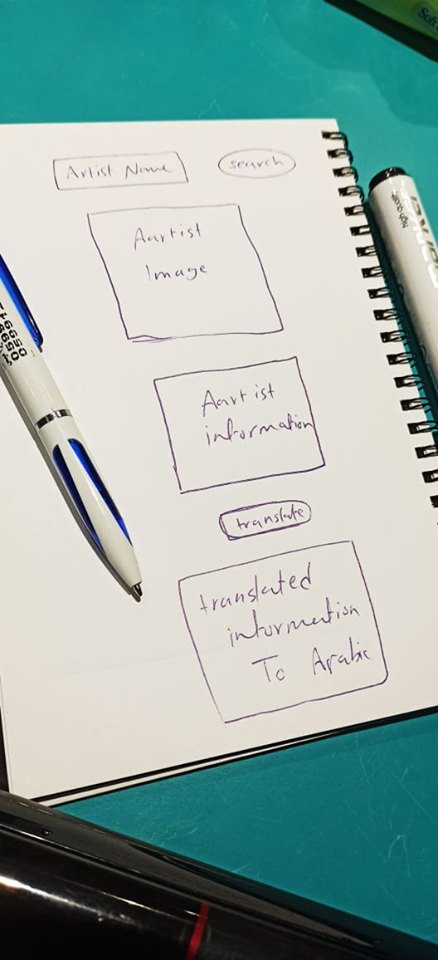 Artist Name
search
Aartist
Image
Aartist
information
translate
translated
information
To Arabic